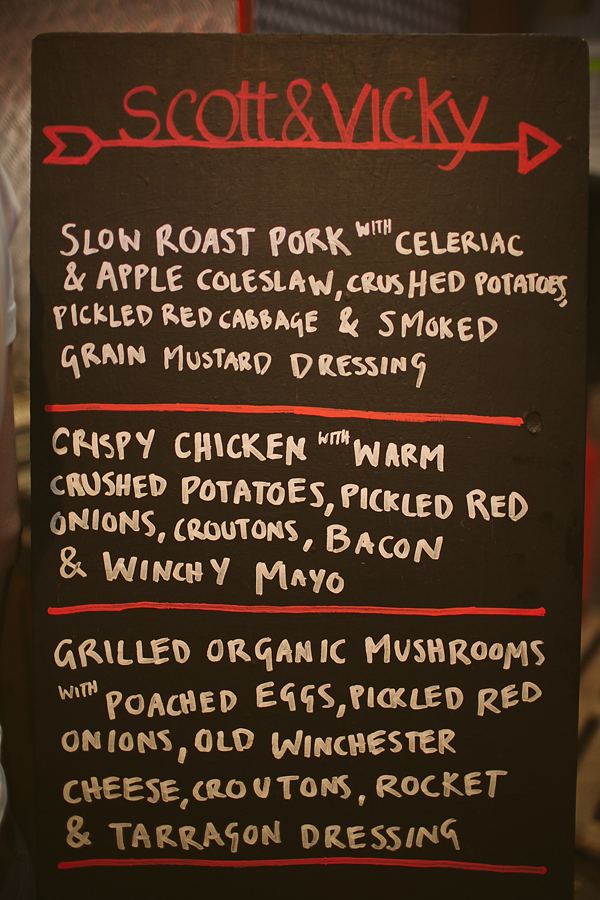 Scott & Vicky
SLOW ROAST PORK WITH CELERIAC
& APPLE COLESLAW, CRUSHED POTATOES,
PICKLED RED CABBAGE & SMOKED
GRAIN MUSTARD DRESSING
CRISPY CHICKEN WITH WARM
CRUSHED POTATOES, PICKLED RED
ONIONS, CROUTONS, BACON
& WINCHY MAYO
GRILLED ORGANIC MUSHROOMS
WITH POACHED EGGS, PICKLED RED
ONIONS, OLD WINCHESTER
CHEESE, CROUTONS, ROCKET
& TARRAGON DRESSING